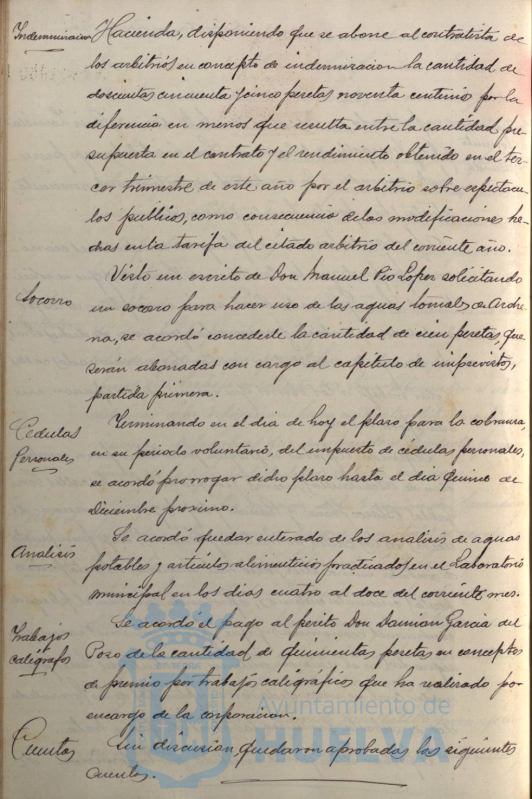 Indemnizacion Hacienda, disponiendo que se abone al contratista de
los arbitrios en concepto de indemnizacion la cantidad de
doscientas cincuenta y cinco pesetas noventa centimos por la
diferencia en menos que resulta entre la cantidad pre-
supuesta en el contrato y el rendimiento obtenido en el ter-
cer trimestre de este año por el arbitrio sobre espectacu-
los publicos, como consecuencia de las modificaciones he-
chas en la tarifa del citado arbitrio del corriente año.
Socorro
Visto un escrito de Don Manuel Pio Lopez solicitando
un socorro para hacer uso de las aguas termales de
na, se acordó concederle la cantidad de cien pesetas, que
serán abonadas con cargo al capitulo de imprevistos,
partida primera.
Cédulas
Personales
Terminando en el dia de hoy el plazo para la cobranza,
en su periodo voluntario, del impuesto de cédulas personales,
se acordó prorrogar dicho plazo hasta el dia quince de
Diciembre proximo.
Analisis
Se acordó quedar enterado de los analisis de aguas
potables y articulos alimenticios practicados en el Laboratorio
municipal en los dias cuatro al doce del corriente mes.
Trabajos
caligrafos
Se acordó el pago al perito Don Damian Garcia del
Pozo de la cantidad de quinientas pesetas en concepto
de premio por trabajos caligráficos que ha realizado por
encargo de la corporacion.
Cuentas
Sin discusion quedaron aprobadas las siguientes
cuentas.
Ayuntamiento de
HUELVA